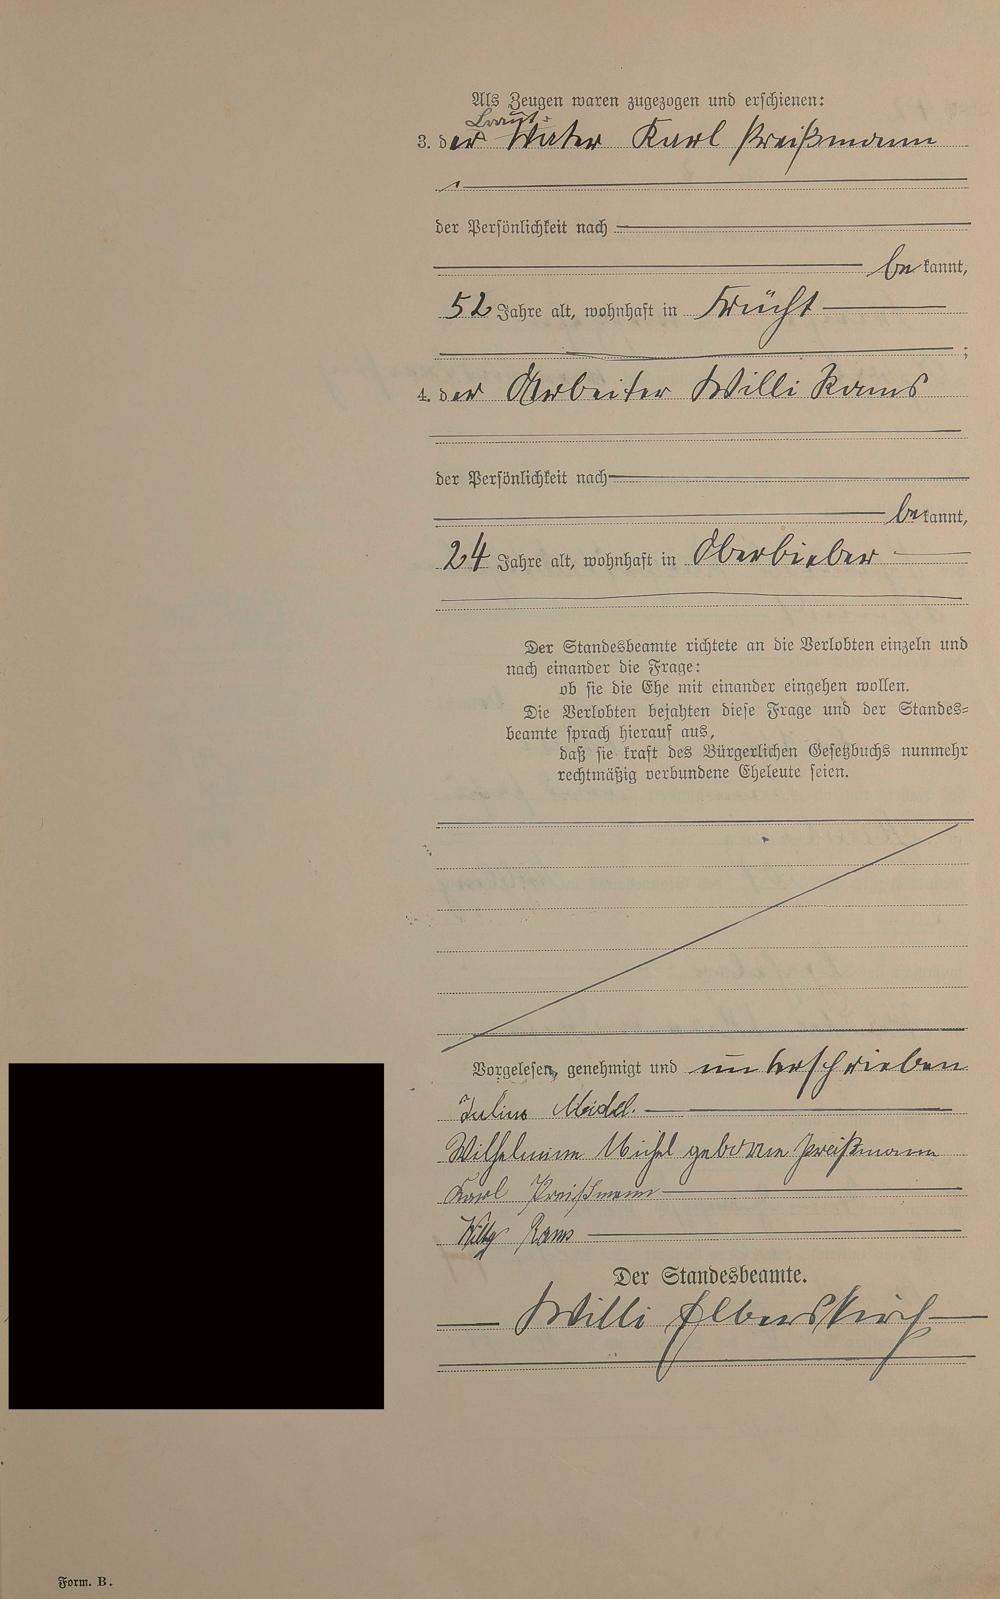 Als Zeugen waren zugezogen und erschienen:
Braut-
3. der Vater Karl Preißmann
der Persönlichkeit nach
bekannt,
52 Jahre alt, wohnhaft in Frücht
;
4. der Arbeiter Willi Rams
der Persönlichkeit nach
bekannt,
24 Jahre alt, wohnhaft in Oberbieber
Der Standesbeamte richtete an die Verlobten einzeln und
nach einander die Frage:
ob sie die Ehe mit einander eingehen wollen.
Die Verlobten bejahten diese Frage und der Standes-
beamte sprach hierauf aus,
daß sie kraft des Bürgerlichen Gesetzbuchs nunmehr
rechtmäßig verbundene Eheleute seien.
Vorgelesen, genehmigt und unterschrieben
Julius
Wilhelmine Michel geborene Preißmann
Karl Preißmann
Willy Rams
Der Standesbeamte.
Willi Elberskirch
Form. B.